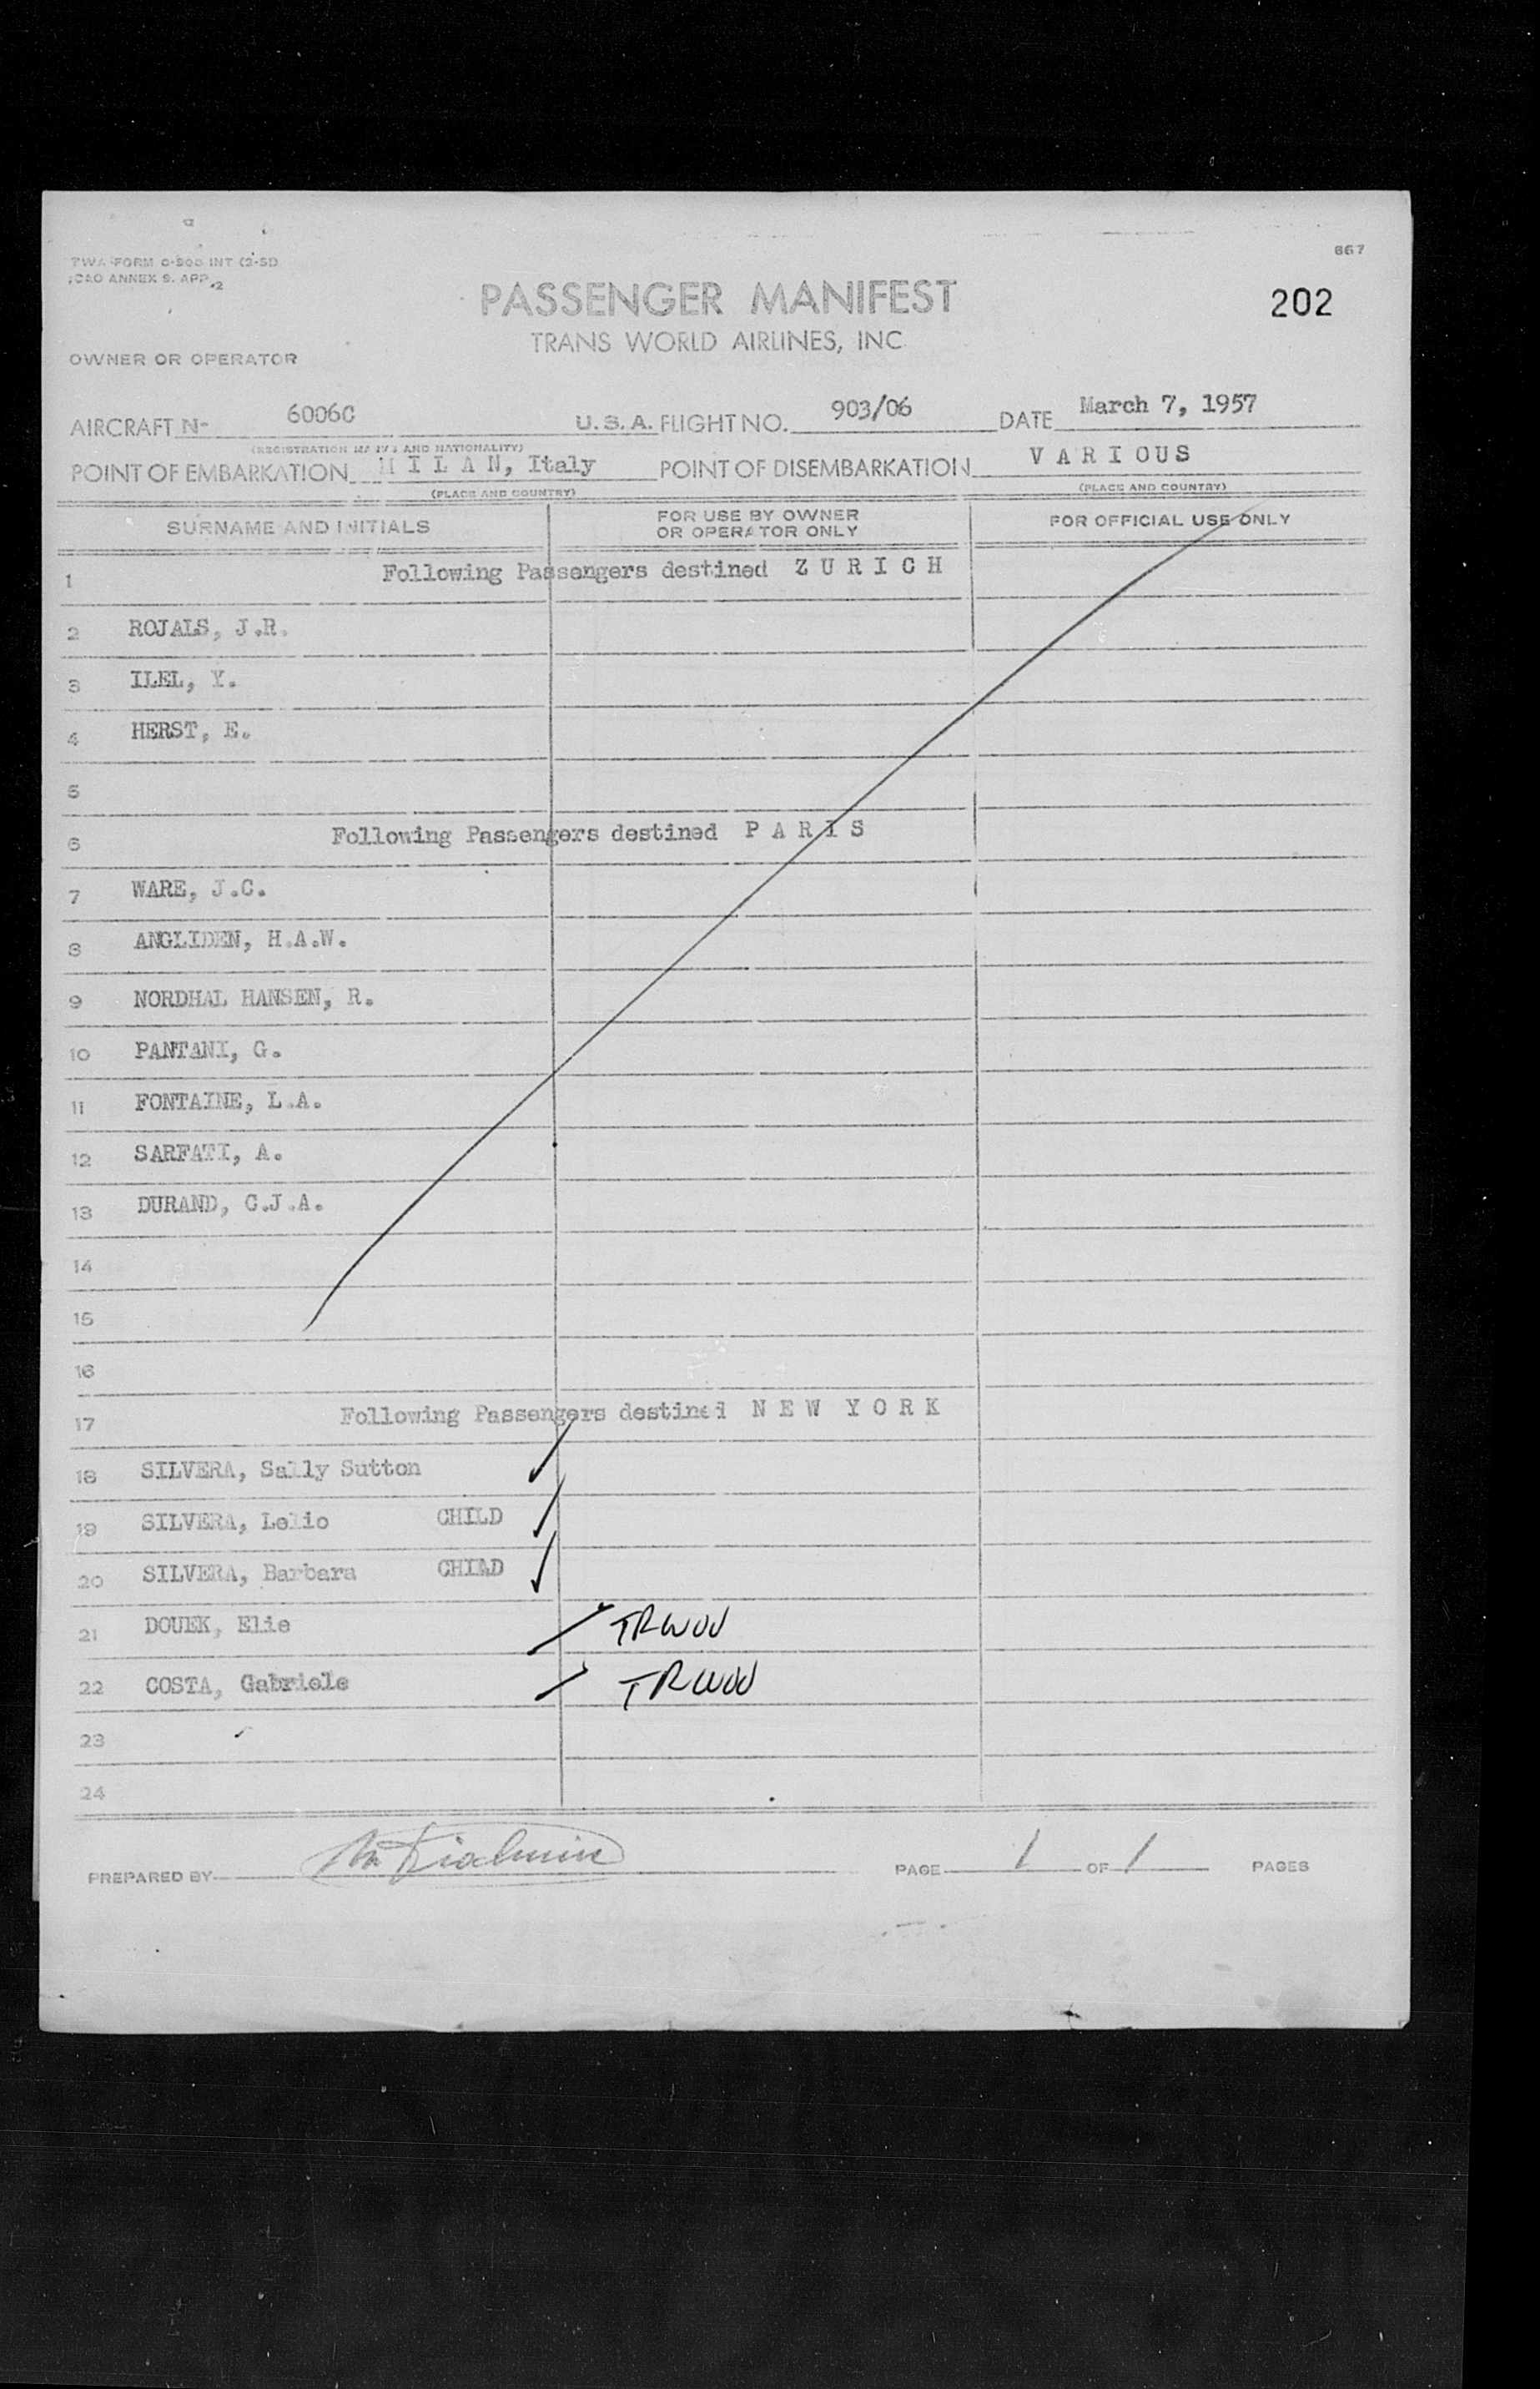 867
TWA FORM O-200 INT (2-51)
ICAO ANNEX 9. APP. 2
PASSENGER MANIFEST
202
TRANS WORLD AIRLINES, INC
OWNER OR OPERATOR
AIRCRAFT N- 6006C U.S.A. FLIGHT NO. 903/06 DATE March 7, 1957
(REGISTRATION MARKS AND NATIONALITY)
POINT OF EMBARKATION M I L A N, Italy POINT OF DISEMBARKATION V A R I O U S
(PLACE AND COUNTRY) (PLACE AND COUNTRY)
SURNAME AND INITIALS FOR USE BY OWNER OR OPERATOR ONLY FOR OFFICIAL USE ONLY
1 Following Passengers destined Z U R I C H
2 ROJALS, J.R.
3 ILEL, Y.
4 HERST, E.
5
6 Following Passengers destined P A R I S
7 WARE, J.C.
8 ANGLIDEN, H.A.W.
9 NORDHAL HANSEN, R.
10 PANTANI, G.
11 FONTAINE, L.A.
12 SARFATI, A.
13 DURAND, C.J.A.
14
15
16
17 Following Passengers destined N E W Y O R K
18 SILVERA, Sally Sutton
19 SILVERA, Lelio CHILD
20 SILVERA, Barbara CHILD
21 DOUEK, Elie TRWOV
22 COSTA, Gabriele TRWOV
23
24
PREPARED BY PAGE 1 OF 1 PAGES